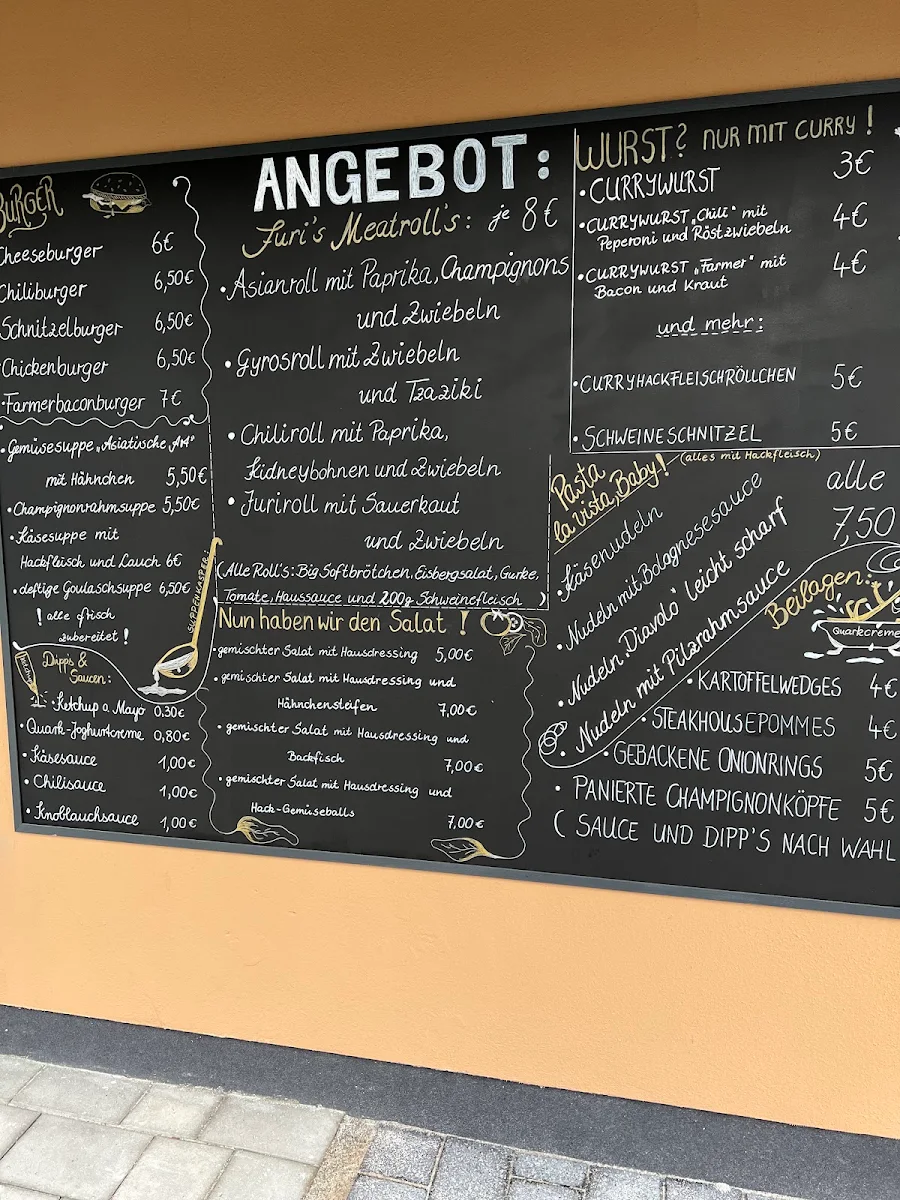 BURGER
Cheeseburger 6€
Chiliburger 6,50€
Schnitzelburger 6,50€
Chickenburger 6,50€
•Farmerbaconburger 7€
•Gemüsesuppe „Asiatische Art"
mit Hähnchen 5,50€
•Champignonrahmsuppe 5,50€
•Käsesuppe mit
Hackfleisch und Lauch 6€
•deftige Goulaschsuppe 6,50€
! alle frisch
zubereitet !
SUPPENKASPER:
Dipp's &
Saucen:
•Ketchup o Mayo 0,30€
•Quark-Joghurtcreme 0,80€
•Käsesauce 1,00€
•Chilisauce 1,00€
•Knoblauchsauce 1,00€
ANGEBOT:
Juri's Meatroll's: je 8€
•Asianroll mit Paprika, Champignons
und Zwiebeln
•Gyrosroll mit Zwiebeln
und Tzaziki
•Chiliroll mit Paprika,
Kidneybohnen und Zwiebeln
•Juriroll mit Sauerkaut
und Zwiebeln
(Alle Roll's: Big Softbrötchen, Eisbergsalat, Gurke,
Tomate, Haussauce und 200g Schweinefleisch )
Nun haben wir den Salat !
•gemischter Salat mit Hausdressing 5,00€
•gemischter Salat mit Hausdressing und
Hähnchensteifen 7,00€
•gemischter Salat mit Hausdressing und
Backfisch 7,00€
•gemischter Salat mit Hausdressing und
Hack-Gemüseballs 7,00€
WURST? NUR MIT CURRY !
•CURRYWURST 3€
•CURRYWURST „Chili" mit 4€
Peperoni und Röstzwiebeln
•CURRYWURST „Farmer" mit 4€
Bacon und Kraut
und mehr:
•CURRYHACKFLEISCHRÖLLCHEN 5€
•SCHWEINESCHNITZEL 5€
Pasta
la vista, Baby! (alles mit Hackfleisch)
alle
7,50
•Käsenudeln
•Nudeln mit Bolagnesesauce
•Nudeln „Diavolo" leicht scharf
•Nudeln mit Pilzrahmsauce
Beilagen:
Quarkcreme
•KARTOFFELWEDGES 4€
•STEAKHOUSEPOMMES 4€
•GEBACKENE ONIONRINGS 5€
•PANIERTE CHAMPIGNONKÖPFE 5€
( SAUCE UND DIPP'S NACH WAHL